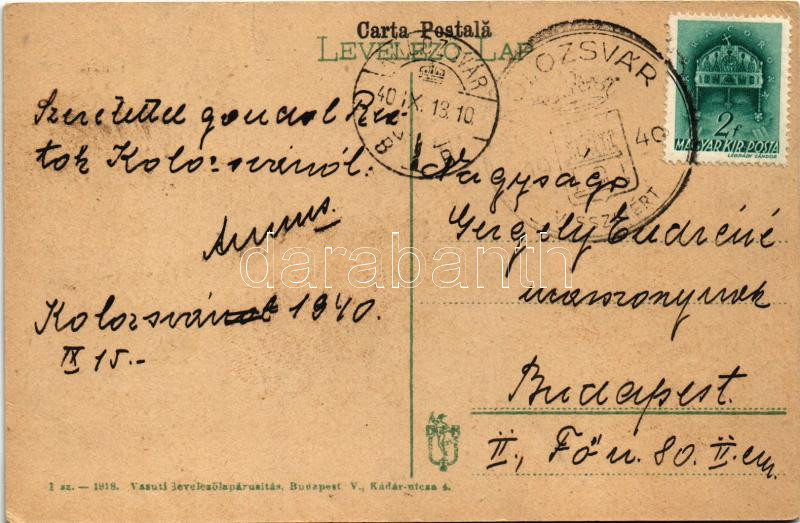 Carta Postală
LEVELEZŐ LAP
KOLOZSVÁR
40 IX. 18. 10
KOLOZSVÁR
40
VISSZATÉRT
2f
MAGYAR KIR. POSTA
LÉGRÁDY SÁNDOR
Szeretettel gondol Rá-
tok Kolozsvárról.
Kolozsvár 1940.
IX 15.-
Nagysága
Gergely Endréné
úrasszonynak
Budapest.
II., Fő u. 80. II. em.
darabanth
1 sz. — 1918. Vasuti levelezőlapárusitás, Budapest V., Kádár-utcza 4.